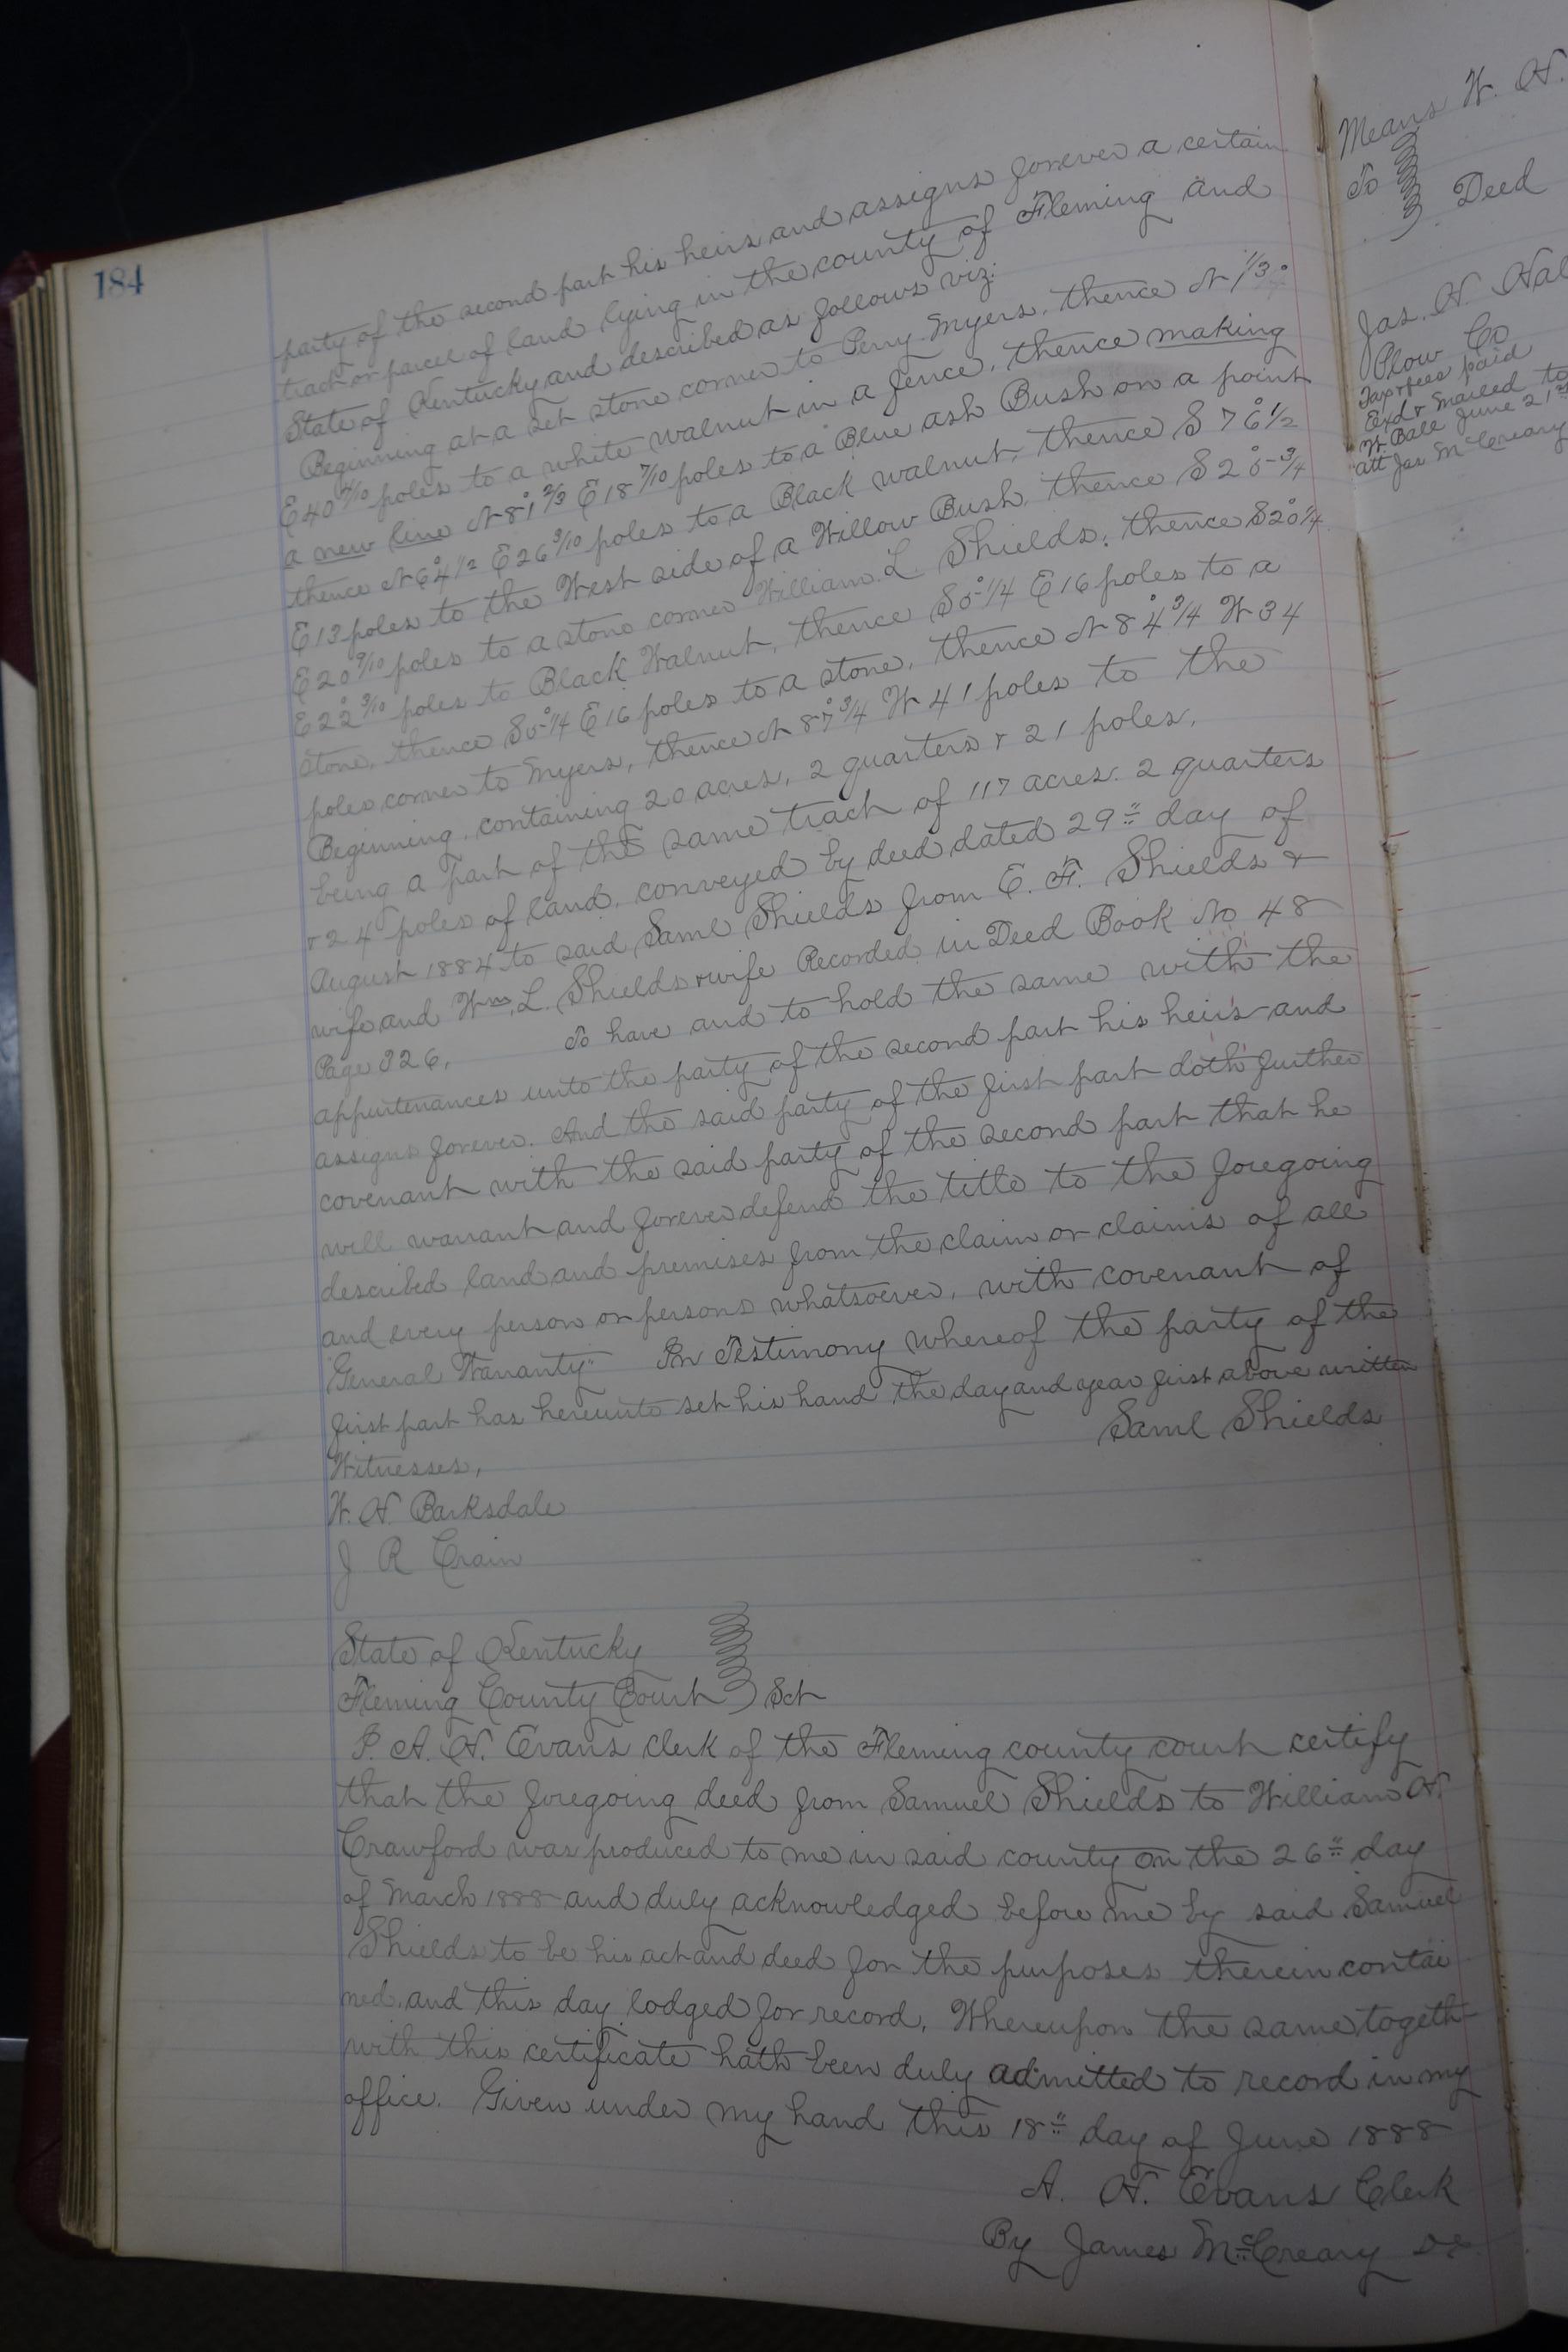 184
party of the second part his heirs and assigns forever a certain
tract or parcel of land lying in the county of Fleming and
State of Kentucky and described as follows viz:
Beginning at a set stone corner to Perry Myers, thence N 1 1/3°
E 40 4/10 poles to a white walnut in a fence, thence making
a new line N 81° 2/3 E 18 7/10 poles to a Blue ash Bush on a point
thence N 64° 1/2 E 26 3/10 poles to a Black walnut, thence S 76° 1/2
E 13 poles to the West side of a Willow Bush, thence S 25° 3/4
E 20 9/10 poles to a stone corner William L. Shields, thence S 20° 1/4
E 22 3/10 poles to Black Walnut, thence S 5° 1/4 E 16 poles to a
stone, thence S 5° 1/4 E 16 poles to a stone, thence N 84° 3/4 W 34
poles corner to Myers, thence N 87° 3/4 W 41 poles to the
Beginning, containing 20 acres, 2 quarters & 21 poles,
being a part of the same tract of 117 acres. 2 quarters
& 24 poles of land, conveyed by deed dated 29" day of
August 1884 to said Saml Shields from E. F. Shields &
wife and Wm. L. Shields & wife Recorded in Deed Book No 48
Page 326, To have and to hold the same with the
appurtenances unto the party of the second part his heirs and
assigns forever. And the said party of the first part doth further
covenant with the said party of the second part that he
will warrant and forever defend the title to the foregoing
described land and premises from the claim or claims of all
and every person or persons whatsoever, with covenant of
"General Warranty" In Testimony whereof the party of the
first part has hereunto set his hand the day and year first above written
Saml Shields
Witnesses,
W. H. Barksdale
J R Crain
State of Kentucky
Fleming County Court } Sct
I. A. H. Evans clerk of the Fleming county court certify
that the foregoing deed from Samuel Shields to William H.
Crawford was produced to me in said county on the 26" day
of March 1888 and duly acknowledged before me by said Samuel
Shields to be his act and deed for the purposes therein contai
ned, and this day lodged for record, Whereupon the same togeth
with this certificate hath been duly admitted to record in my
office. Given under my hand this 18" day of June 1888
A. H. Evans Clerk
By James McCreary DC
Means W. H.
To } Deed
Jas. H. Hal
Plow Co
Tax & fees paid
Exd & mailed to
W. Ball June 21st
att Jas McCreary